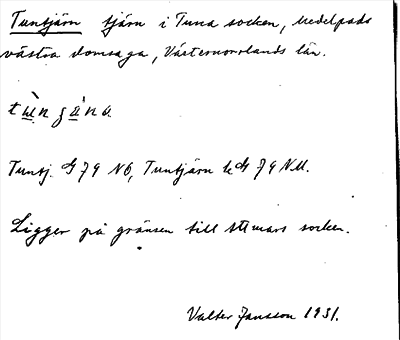 Tuntjärn tjärn i Tuna socken, Medelpads
västra domsaga, Västernorrlands län.
Tuntj. G 79 NÖ, Tuntjärn G 79 NU.
Ligger på gränsen till Attmars socken.
Valter Jansson 1931.